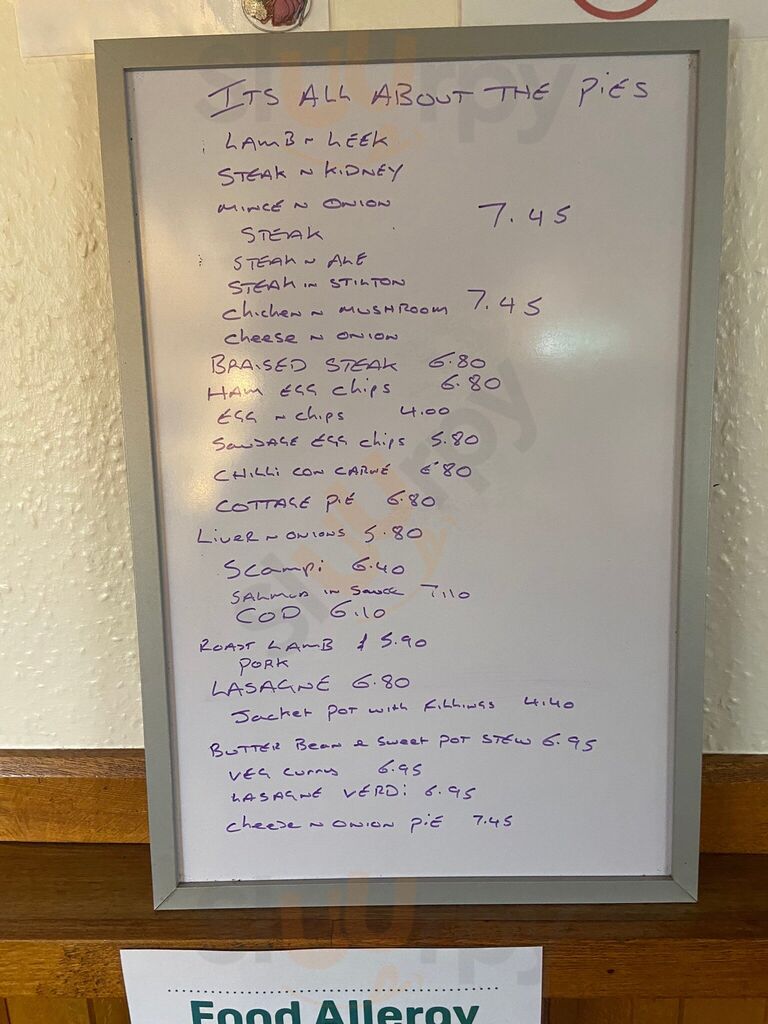 ITS ALL ABOUT THE PIES
LAMB N LEEK
STEAK N KIDNEY
MINCE N ONION
7.45
STEAK
STEAK N ALE
STEAK IN STILTON
Chicken N MUSHROOM 7.45
Cheese N ONION
BRAISED STEAK 6.80
HAM EGG Chips 6.80
EGG N Chips 4.00
SAUSAGE EGG Chips 5.80
CHILLI CON CARNE 6.80
COTTAGE PIE 6.80
LIVER N ONIONS 5.80
SCAMPI 6.40
SALMON IN SAUCE 7.10
COD 6.10
ROAST LAMB £ 5.90
PORK
LASAGNE 6.80
Jacket POT with FILLINGS 4.40
BUTTER BEAN & SWEET POT STEW 6.95
VEG 6.95
LASAGNE VERDI 6.95
Cheese N ONION PIE 7.45
Food Allergy
sluurpy